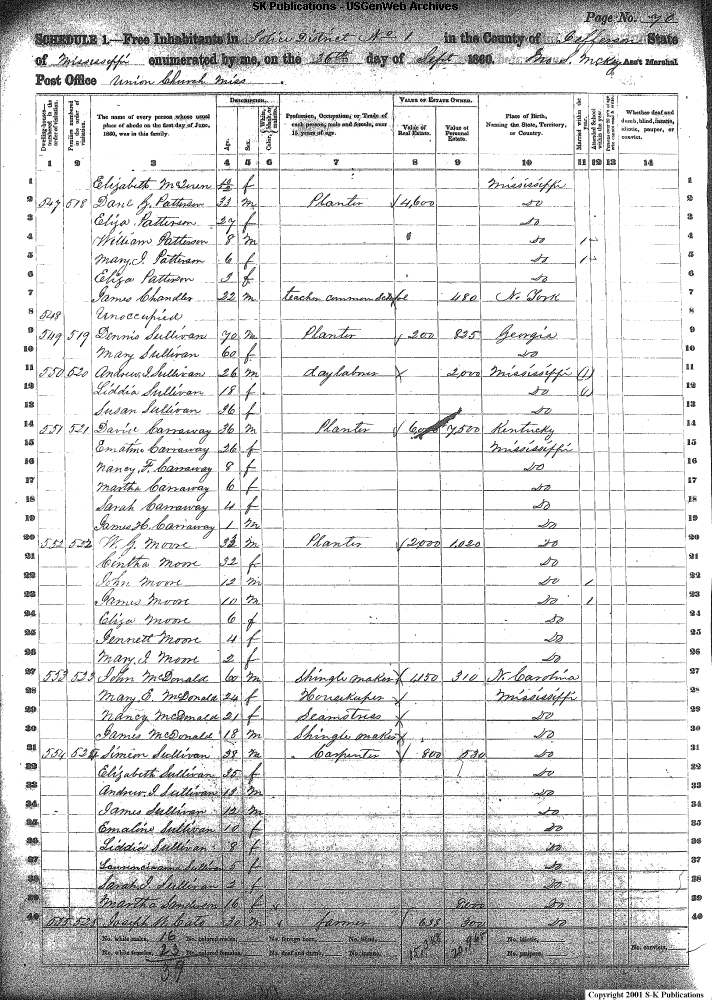 SK Publications - USGenWeb Archives
Page No. 70
SCHEDULE 1.—Free Inhabitants in Police District No 1 in the County of Jefferson State
of Mississippi enumerated by me, on the 26th day of Sept 1860. Ass't Marshal
Post Office Union Church Miss.
DESCRIPTION. VALUE OF ESTATE OWNED.
The name of every person whose usual place of abode on the first day of June, 1860, was in this family. Age. Sex. Profession, Occupation, or Trade of each person, male and female, over 15 years of age. Value of Real Estate. Value of Personal Estate. Place of Birth, Naming the State, Territory, or Country. Married within the year. Attended School within the year. Whether deaf and dumb, blind, insane, idiotic, pauper, or convict.
1 2 3 4 5 6 7 8 9 10 11 12 13 14
1 Elizabeth f Mississippi 1
2 547 518 Danl G. Patterson 33 m Planter 4,600 Do 2
3 Eliza Patterson 27 f Do 3
4 William Patterson 8 m Do 1 4
5 Mary J. Patterson 6 f Do 1 5
6 Eliza Patterson 3 f Do 6
7 James Chandler 22 m teacher common school 480 N. York 7
8 548 Unoccupied 8
9 549 519 Dennis Sullivan 70 m Planter 200 825 Georgia 9
10 Mary Sullivan 60 f Do 10
11 550 520 Andrew J Sullivan 26 m day labner 2,000 Mississippi (1) 11
12 Liddia Sullivan 18 f Do (1) 12
13 Susan Sullivan 36 f Do 13
14 551 521 David Carraway 36 m Planter 7,500 Kentucky 14
15 Emaline Carraway 26 f Mississippi 15
16 Nancy F. Carraway 8 f Do 16
17 Martha Carraway 6 f Do 17
18 Sarah Carraway 4 f Do 18
19 James H. Carraway 1 m Do 19
20 552 522 W. G. Moore m Planter 2,000 1,020 Do 20
21 Cintha Moore 32 f Do 21
22 John Moore 12 m Do 1 22
23 James Moore 10 m Do 1 23
24 Eliza Moore 6 f Do 24
25 Jennett Moore 4 f Do 25
26 Mary J. Moore 2 f Do 26
27 553 523 John McDonald 60 m Shingle maker 310 N. Carolina 27
28 Mary E. McDonald 24 f Housekeeper Mississippi 28
29 Nancy McDonald 21 f Seamstress Do 29
30 James McDonald 18 m Shingle maker Do 30
31 554 524 Simion Sullivan 38 m Carpenter 800 530 Do 31
32 Elizabeth Sullivan 35 f Do 32
33 Andrew J. Sullivan 13 m Do 33
34 James Sullivan 12 m Do 34
35 Emaline Sullivan 10 f Do 35
36 Liddia Sullivan 8 f Do 36
37 Sullivan 5 f Do 37
38 Sarah J. Sullivan 2 f Do 38
39 Martha 16 f Do 39
40 555 525 Joseph W. Cato 30 m farmer 638 300 Do 40
No. white males, 16 No. colored males, No. foreign born, No. blind, No. idiotic,
No. white females, 23 No. colored females, No. deaf and dumb, No. insane, No. paupers, No. convicts,
39
Copyright 2001 S-K Publications